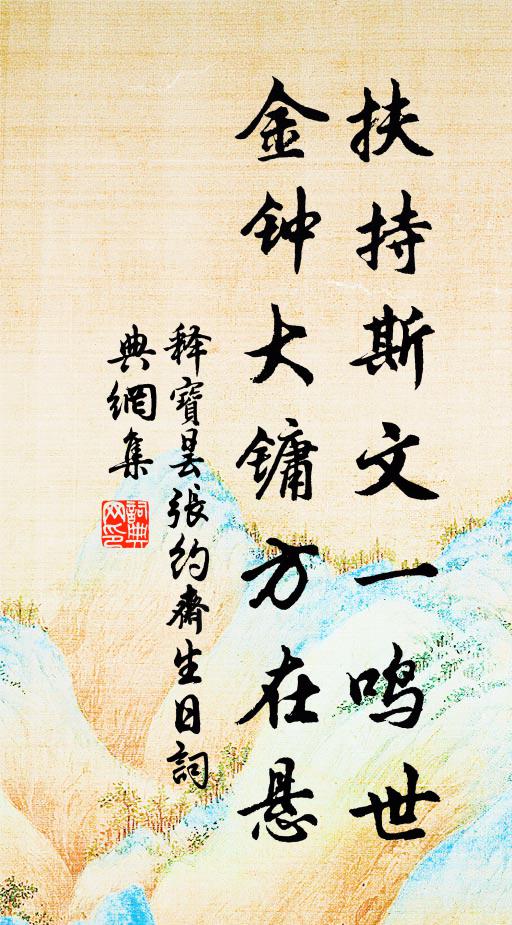 扶持斯文一鸣世
金钟大镛方在悬
释寶昙張约齋生日詞
典網集
詞典网印